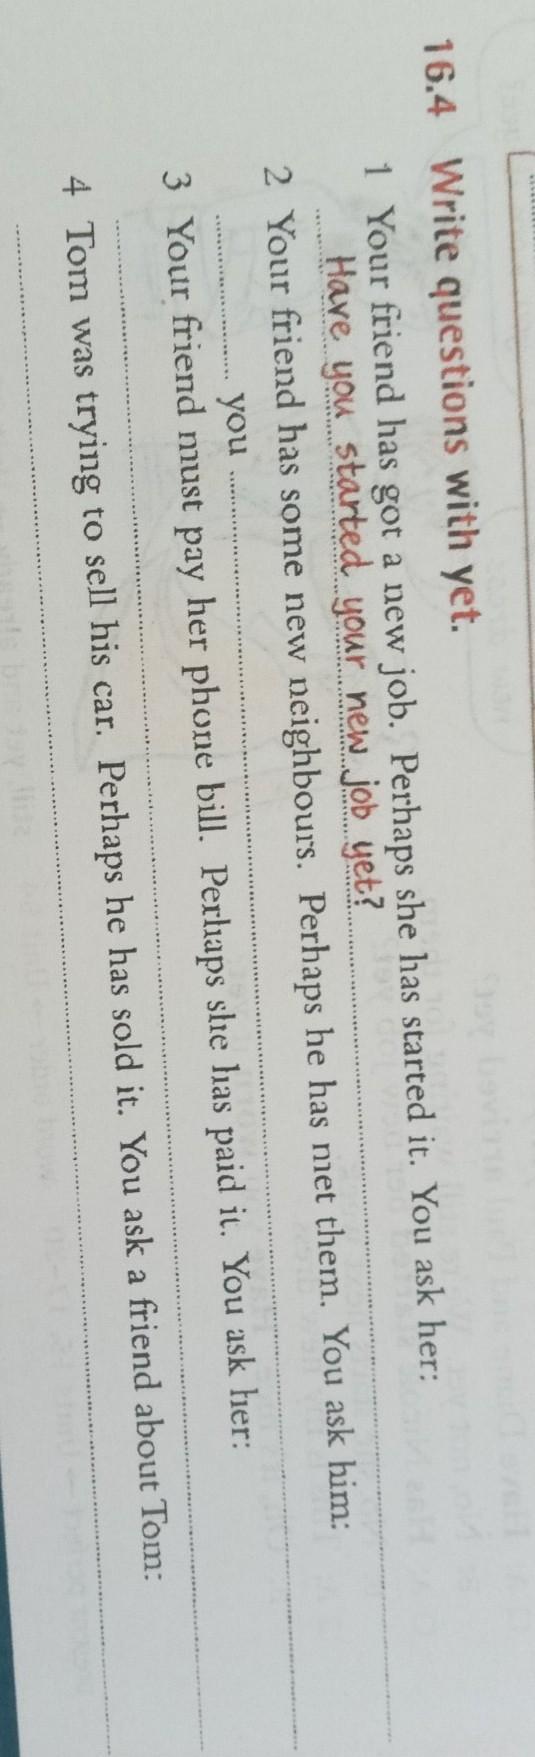 16.4 Write questions with yet.
1 Your friend has got a new job. Perhaps she has started it. You ask her:
Have you started your new job yet?
2 Your friend has some new neighbours. Perhaps he has met them. You ask him:
you
3 Your friend must pay her phone bill. Perhaps she has paid it. You ask her:
4 Tom was trying to sell his car. Perhaps he has sold it. You ask a friend about Tom: